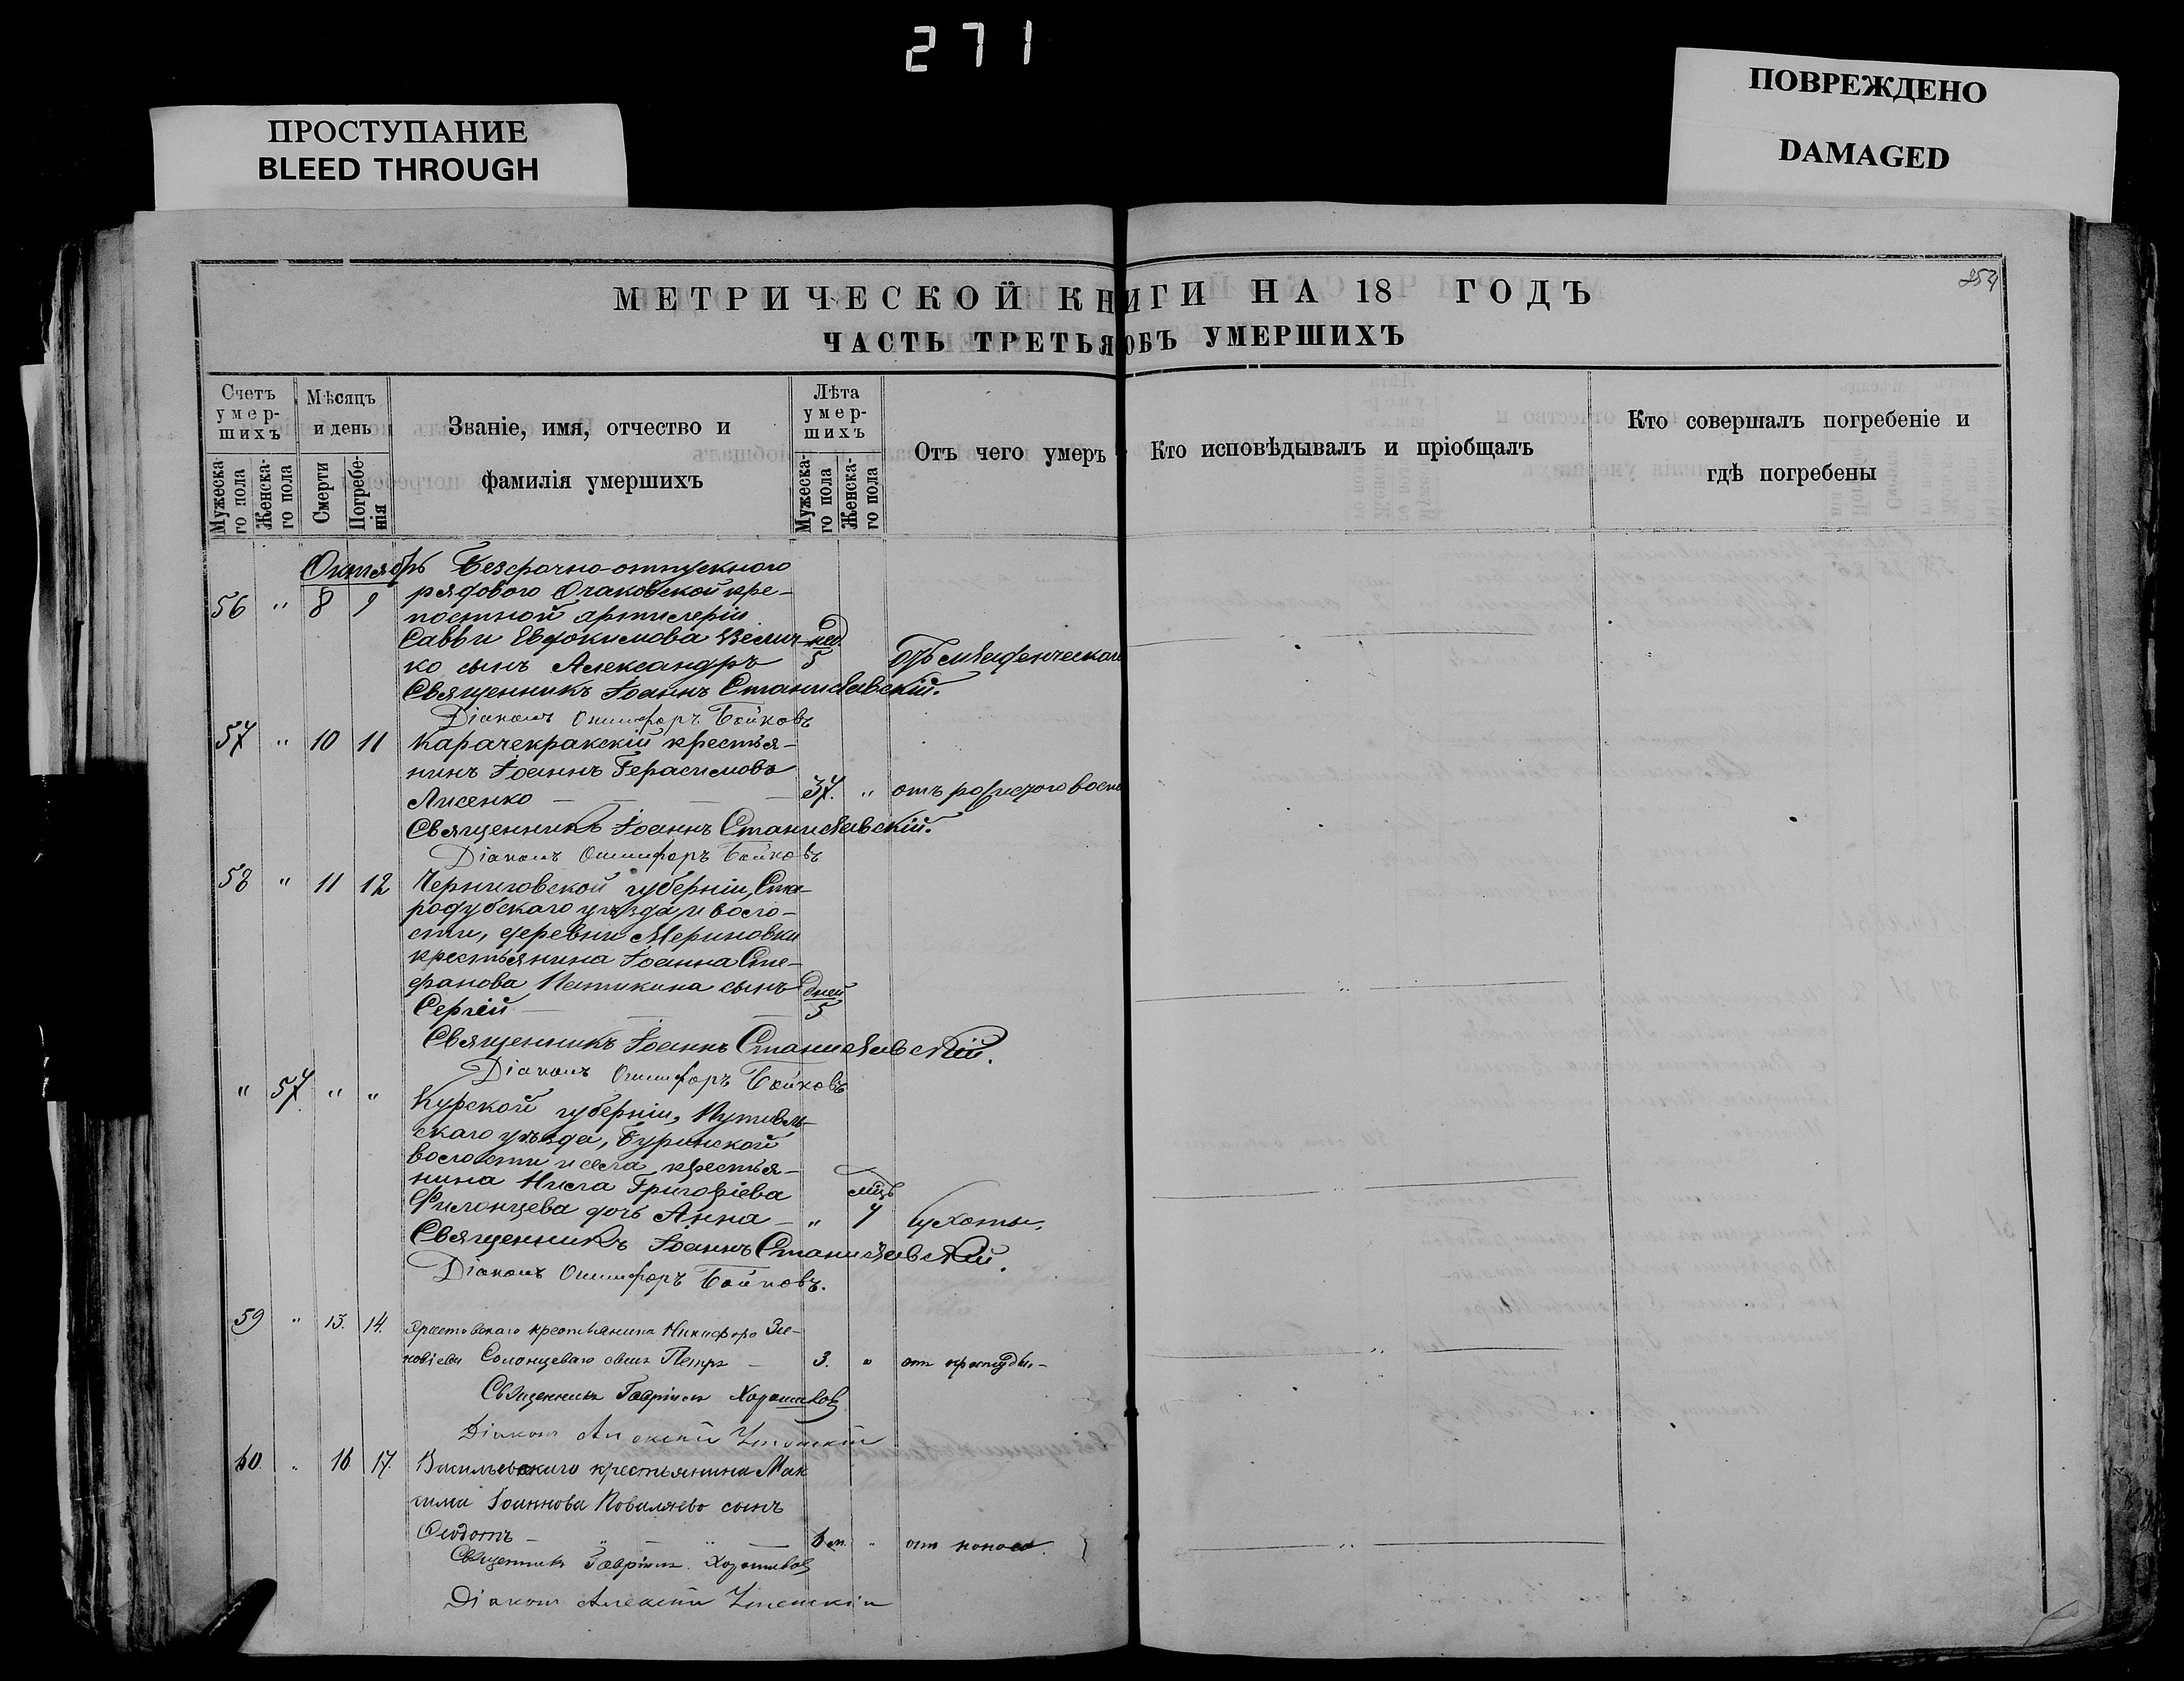 271
ПРОСТУПАНИЕ
BLEED THROUGH
ПОВРЕЖДЕНО
DAMAGED
МЕТРИЧЕСКОЙ КНИГИ НА 18 ГОДЪ
ЧАСТЬ ТРЕТЬЯ ОБЪ УМЕРШИХЪ
Счетъ умер-шихъ
Мужеска-го пола
Женска-го пола
Мѣсяцъ и день
Смерти
Погребе-нія
Званіе, имя, отчество и
фамилія умершихъ
Лѣта умер-шихъ
Мужеска-го пола
Женска-го пола
Отъ чего умеръ
Кто исповѣдывалъ и пріобщалъ
Кто совершалъ погребеніе и
гдѣ погребены
Октябрь Безсрочно-отпускного
56 " 8 9 рядового Очаковской кре-
постной артилеріи
Саввы Евдокимова Велич- нед.
ко сынъ Александръ 5 отъ младенческой
Священникъ Іоаннъ Станиславскій.
Діаконъ Онисифоръ Бойковъ
57 " 10 11 Карачекракскій крестья-
нинъ Іоаннъ Герасимовъ
Лисенко — — — — 37. " отъ
Священникъ Іоаннъ Станиславскій.
Діаконъ Онисифоръ Бойковъ
58 " 11 12 Черниговской губерніи, Ста-
родубскаго уѣзда и воло-
сти, деревни Мериновки
крестьянина Іоанна Сте-
фанова сынъ дней
Сергій — — — 5
Священникъ Іоаннъ Станиславскій.
Діаконъ Онисифоръ Бойковъ
" 57 " " Курской губерніи, Путивль-
скаго уѣзда, Буринской
волости и села, крестья-
нина Нила Григоріева мѣц.
Филонцева дочь Анна — "
Священникъ Іоаннъ Станиславскій.
Діаконъ Онисифоръ Бойковъ.
59 " 13. 14. крестьянина Никифора Зи-
новіева Солонцеваго сынъ Петръ — 3. " отъ простуды. —
Священникъ Гавріилъ Хорошковъ
Діаконъ Алексій
60. " 16 17. Васильевскаго крестьянина Мак
сима Іоаннова сынъ
Ѳеодотъ — " — " — 6 м. " отъ поноса.
Священникъ Гавріилъ Хорошковъ
Діаконъ Алексій